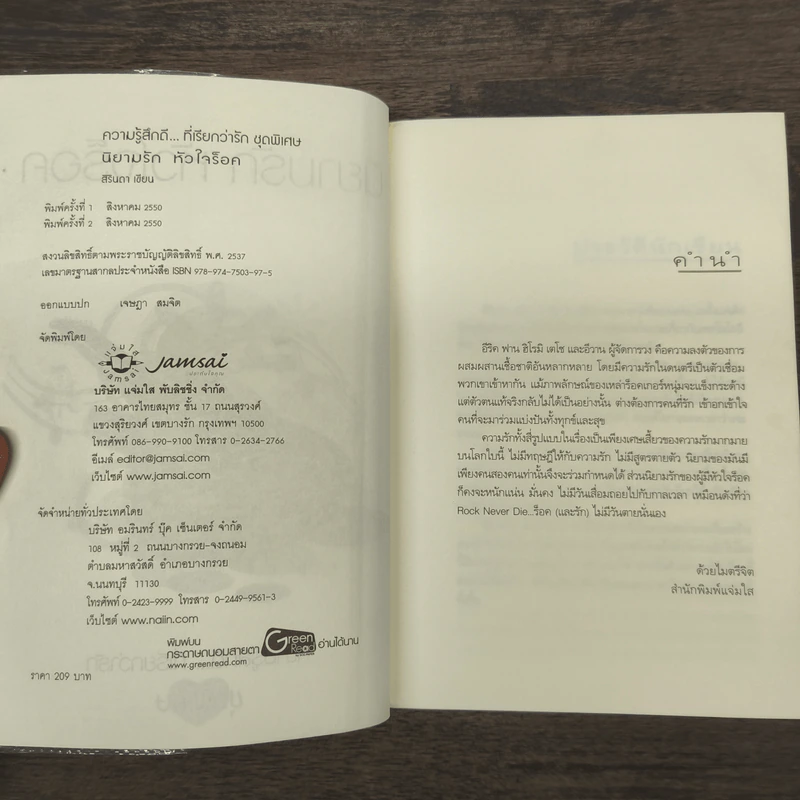 ความรู้สึกดี... ที่เรียกว่ารัก ชุดพิเศษ
นิยามรัก หัวใจร็อค
สิรินดา เขียน
พิมพ์ครั้งที่ 1 สิงหาคม 2550
พิมพ์ครั้งที่ 2 สิงหาคม 2550
สงวนลิขสิทธิ์ตามพระราชบัญญัติลิขสิทธิ์ พ.ศ. 2537
เลขมาตรฐานสากลประจำหนังสือ ISBN 978-974-7503-97-5
ออกแบบปก เจษฎา สมจิต
จัดพิมพ์โดย
แจ่มใส
JAMSAI
Jamsai
บริษัท แจ่มใส พับลิชชิ่ง จำกัด
163 อาคารไทยสมุทร ชั้น 17 ถนนสุรวงศ์
แขวงสุริยวงศ์ เขตบางรัก กรุงเทพฯ 10500
โทรศัพท์ 086-990-9100 โทรสาร 0-2634-2766
อีเมล์ editor@jamsai.com
เว็บไซต์ www.jamsai.com
จัดจำหน่ายทั่วประเทศโดย
บริษัท อมรินทร์ บุ๊ค เซ็นเตอร์ จำกัด
108 หมู่ที่ 2 ถนนบางกรวย-จงถนอม
ตำบลมหาสวัสดิ์ อำเภอบางกรวย
จ.นนทบุรี 11130
โทรศัพท์ 0-2423-9999 โทรสาร 0-2449-9561-3
เว็บไซต์ www.naiin.com
พิมพ์บน
กระดาษถนอมสายตา Green Read อ่านได้นาน
www.greenread.com
ราคา 209 บาท
คำนำ
อีริค ฟาน ฮิโรมิ เตโช และอีวาน ผู้จัดการวง คือความลงตัวของการ
ผสมผสานเชื้อชาติอันหลากหลาย โดยมีความรักในดนตรีเป็นตัวเชื่อม
พวกเขาเข้าหากัน แม้ภาพลักษณ์ของเหล่าร็อคเกอร์หนุ่มจะแข็งกระด้าง
แต่ตัวตนแท้จริงกลับไม่ได้เป็นอย่างนั้น ต่างต้องการคนที่รัก เข้าอกเข้าใจ
คนที่จะมาร่วมแบ่งปันทั้งทุกข์และสุข
ความรักทั้งสี่รูปแบบในเรื่องเป็นเพียงเศษเสี้ยวของความรักมากมาย
บนโลกใบนี้ ไม่มีทฤษฎีให้กับความรัก ไม่มีสูตรตายตัว นิยามของมันมี
เพียงคนสองคนเท่านั้นจึงจะร่วมกำหนดได้ ส่วนนิยามรักของผู้มีหัวใจร็อค
ก็คงจะหนักแน่น มั่นคง ไม่มีวันเสื่อมถอยไปกับกาลเวลา เหมือนดังที่ว่า
Rock Never Die...ร็อค (และรัก) ไม่มีวันตายนั่นเอง
ด้วยไมตรีจิต
สำนักพิมพ์แจ่มใส